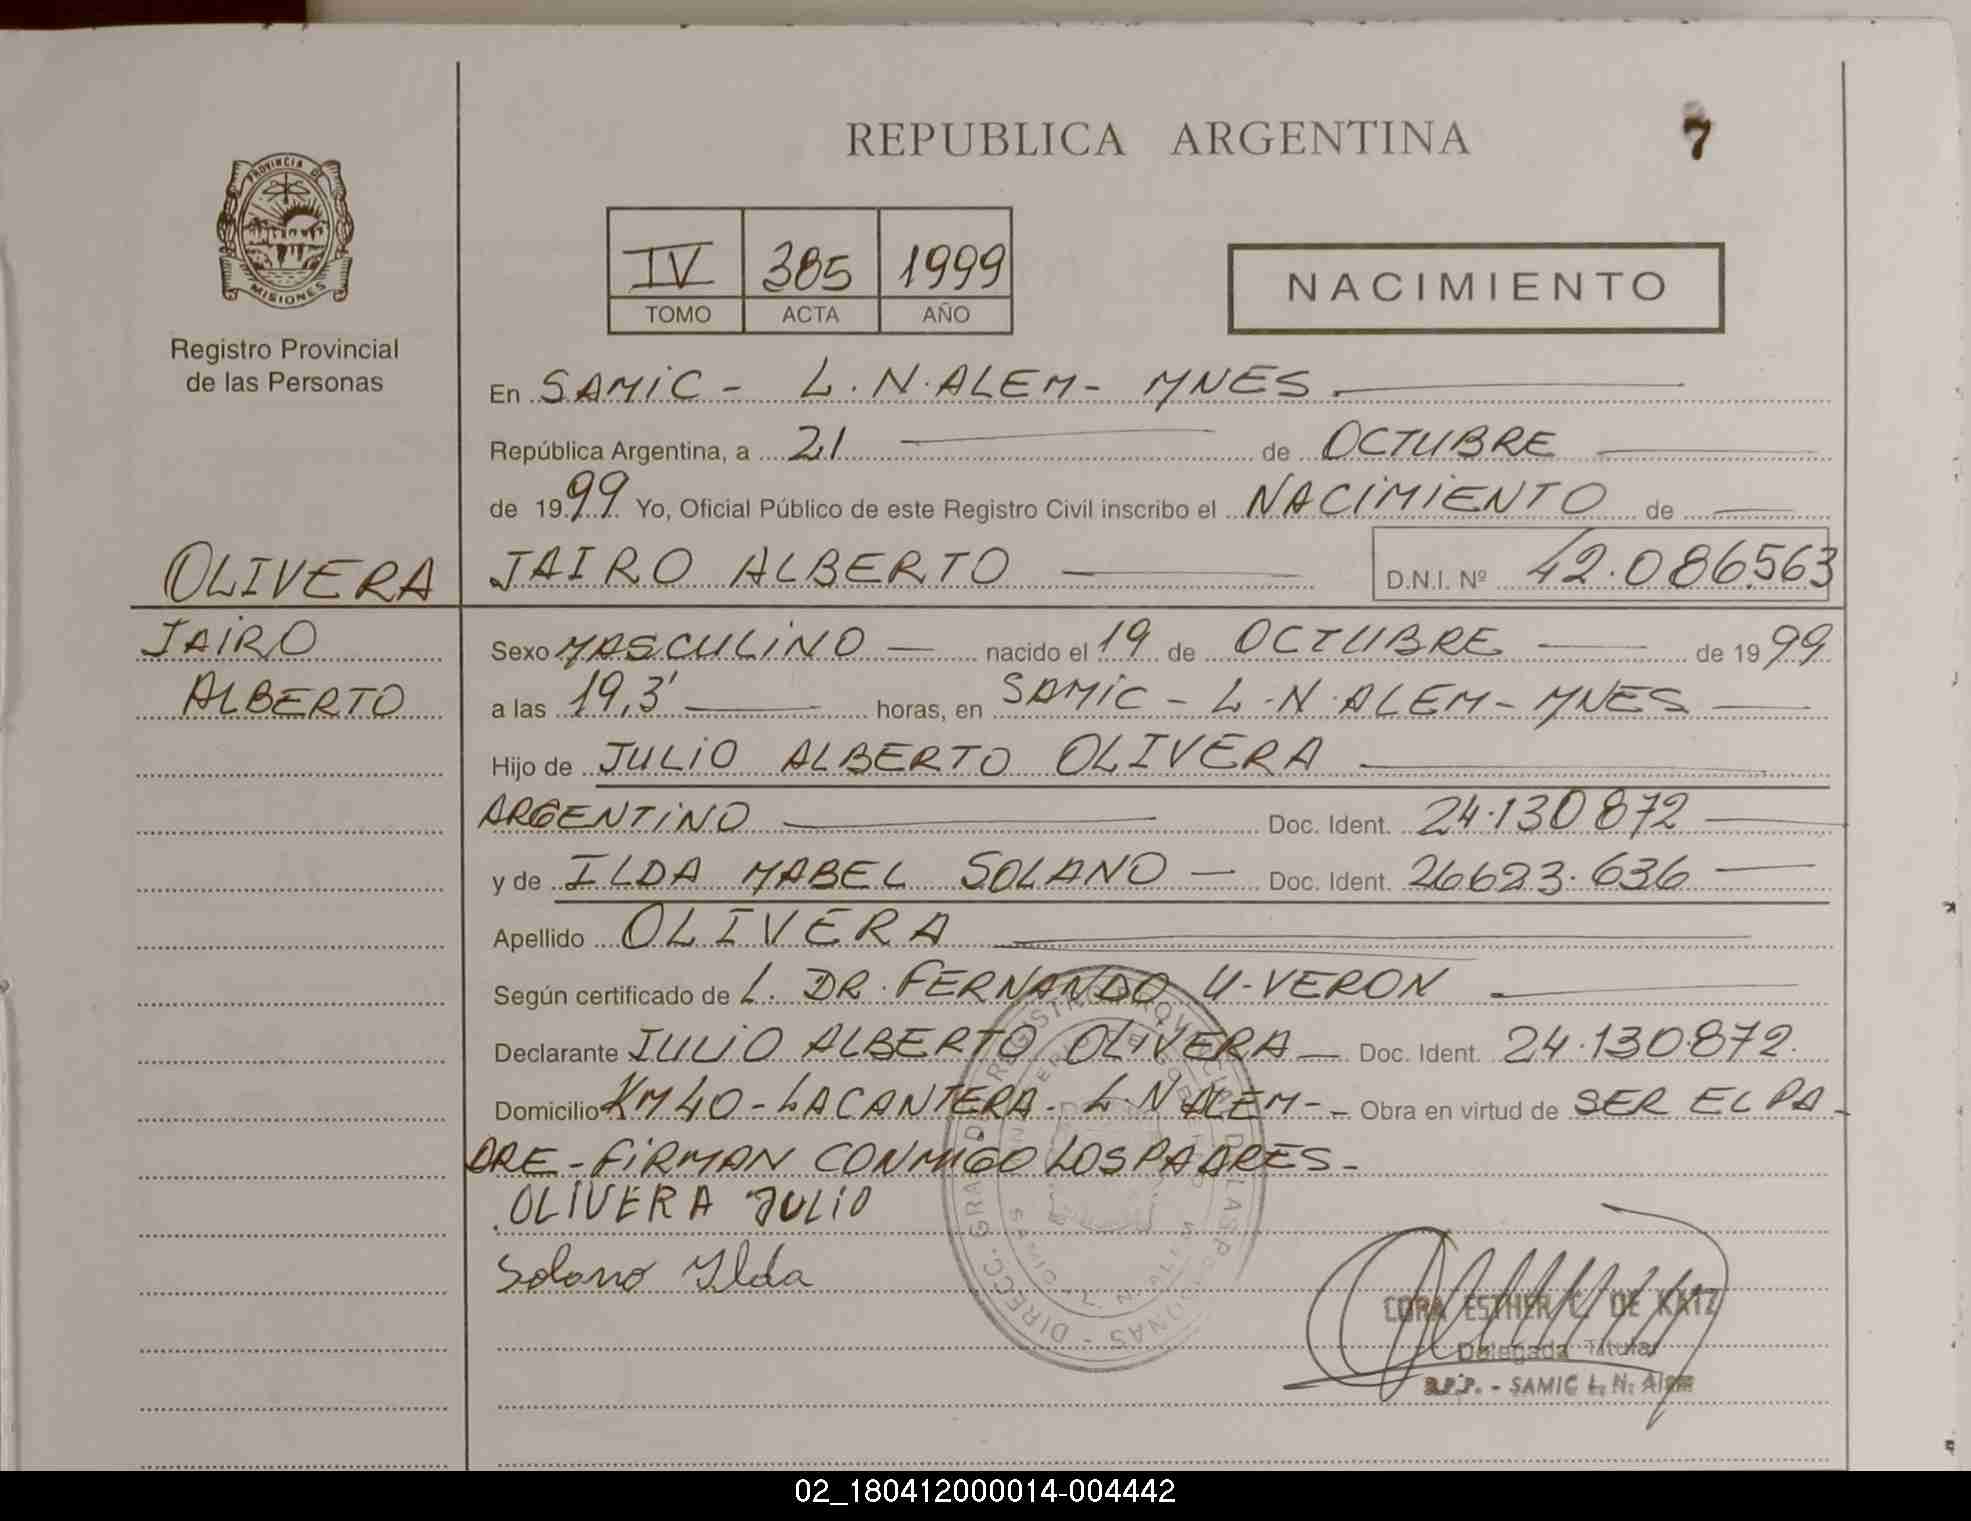 REPUBLICA ARGENTINA
7
PROVINCIA DE
MISIONES
Registro Provincial
de las Personas
IV 385 1999
TOMO ACTA AÑO
NACIMIENTO
En SAMIC - L. N. ALEM - MNES
República Argentina, a 21 de OCTUBRE
de 1999 Yo, Oficial Público de este Registro Civil inscribo el NACIMIENTO de
OLIVERA JAIRO ALBERTO D.N.I. Nº 42.086.563
JAIRO Sexo MASCULINO nacido el 19 de OCTUBRE de 1999
ALBERTO a las 19,3' horas, en SAMIC - L. N. ALEM - MNES
Hijo de JULIO ALBERTO OLIVERA
ARGENTINO Doc. Ident. 24.130.872
y de ILDA MABEL SOLANO Doc. Ident. 26623.636
Apellido OLIVERA
Según certificado de L. DR. FERNANDO U. VERON
Declarante JULIO ALBERTO OLIVERA Doc. Ident. 24.130.872.
Domicilio KM 40 - LA CANTERA - L. N ALEM - Obra en virtud de SER EL PA-
DRE - FIRMAN CONMIGO LOS PADRES -
OLIVERA JULIO
Solano Ilda
CORA ESTHER C. DE KATZ
Delegada Titular
R.P.P. - SAMIC L. N. Alem
02_180412000014-004442